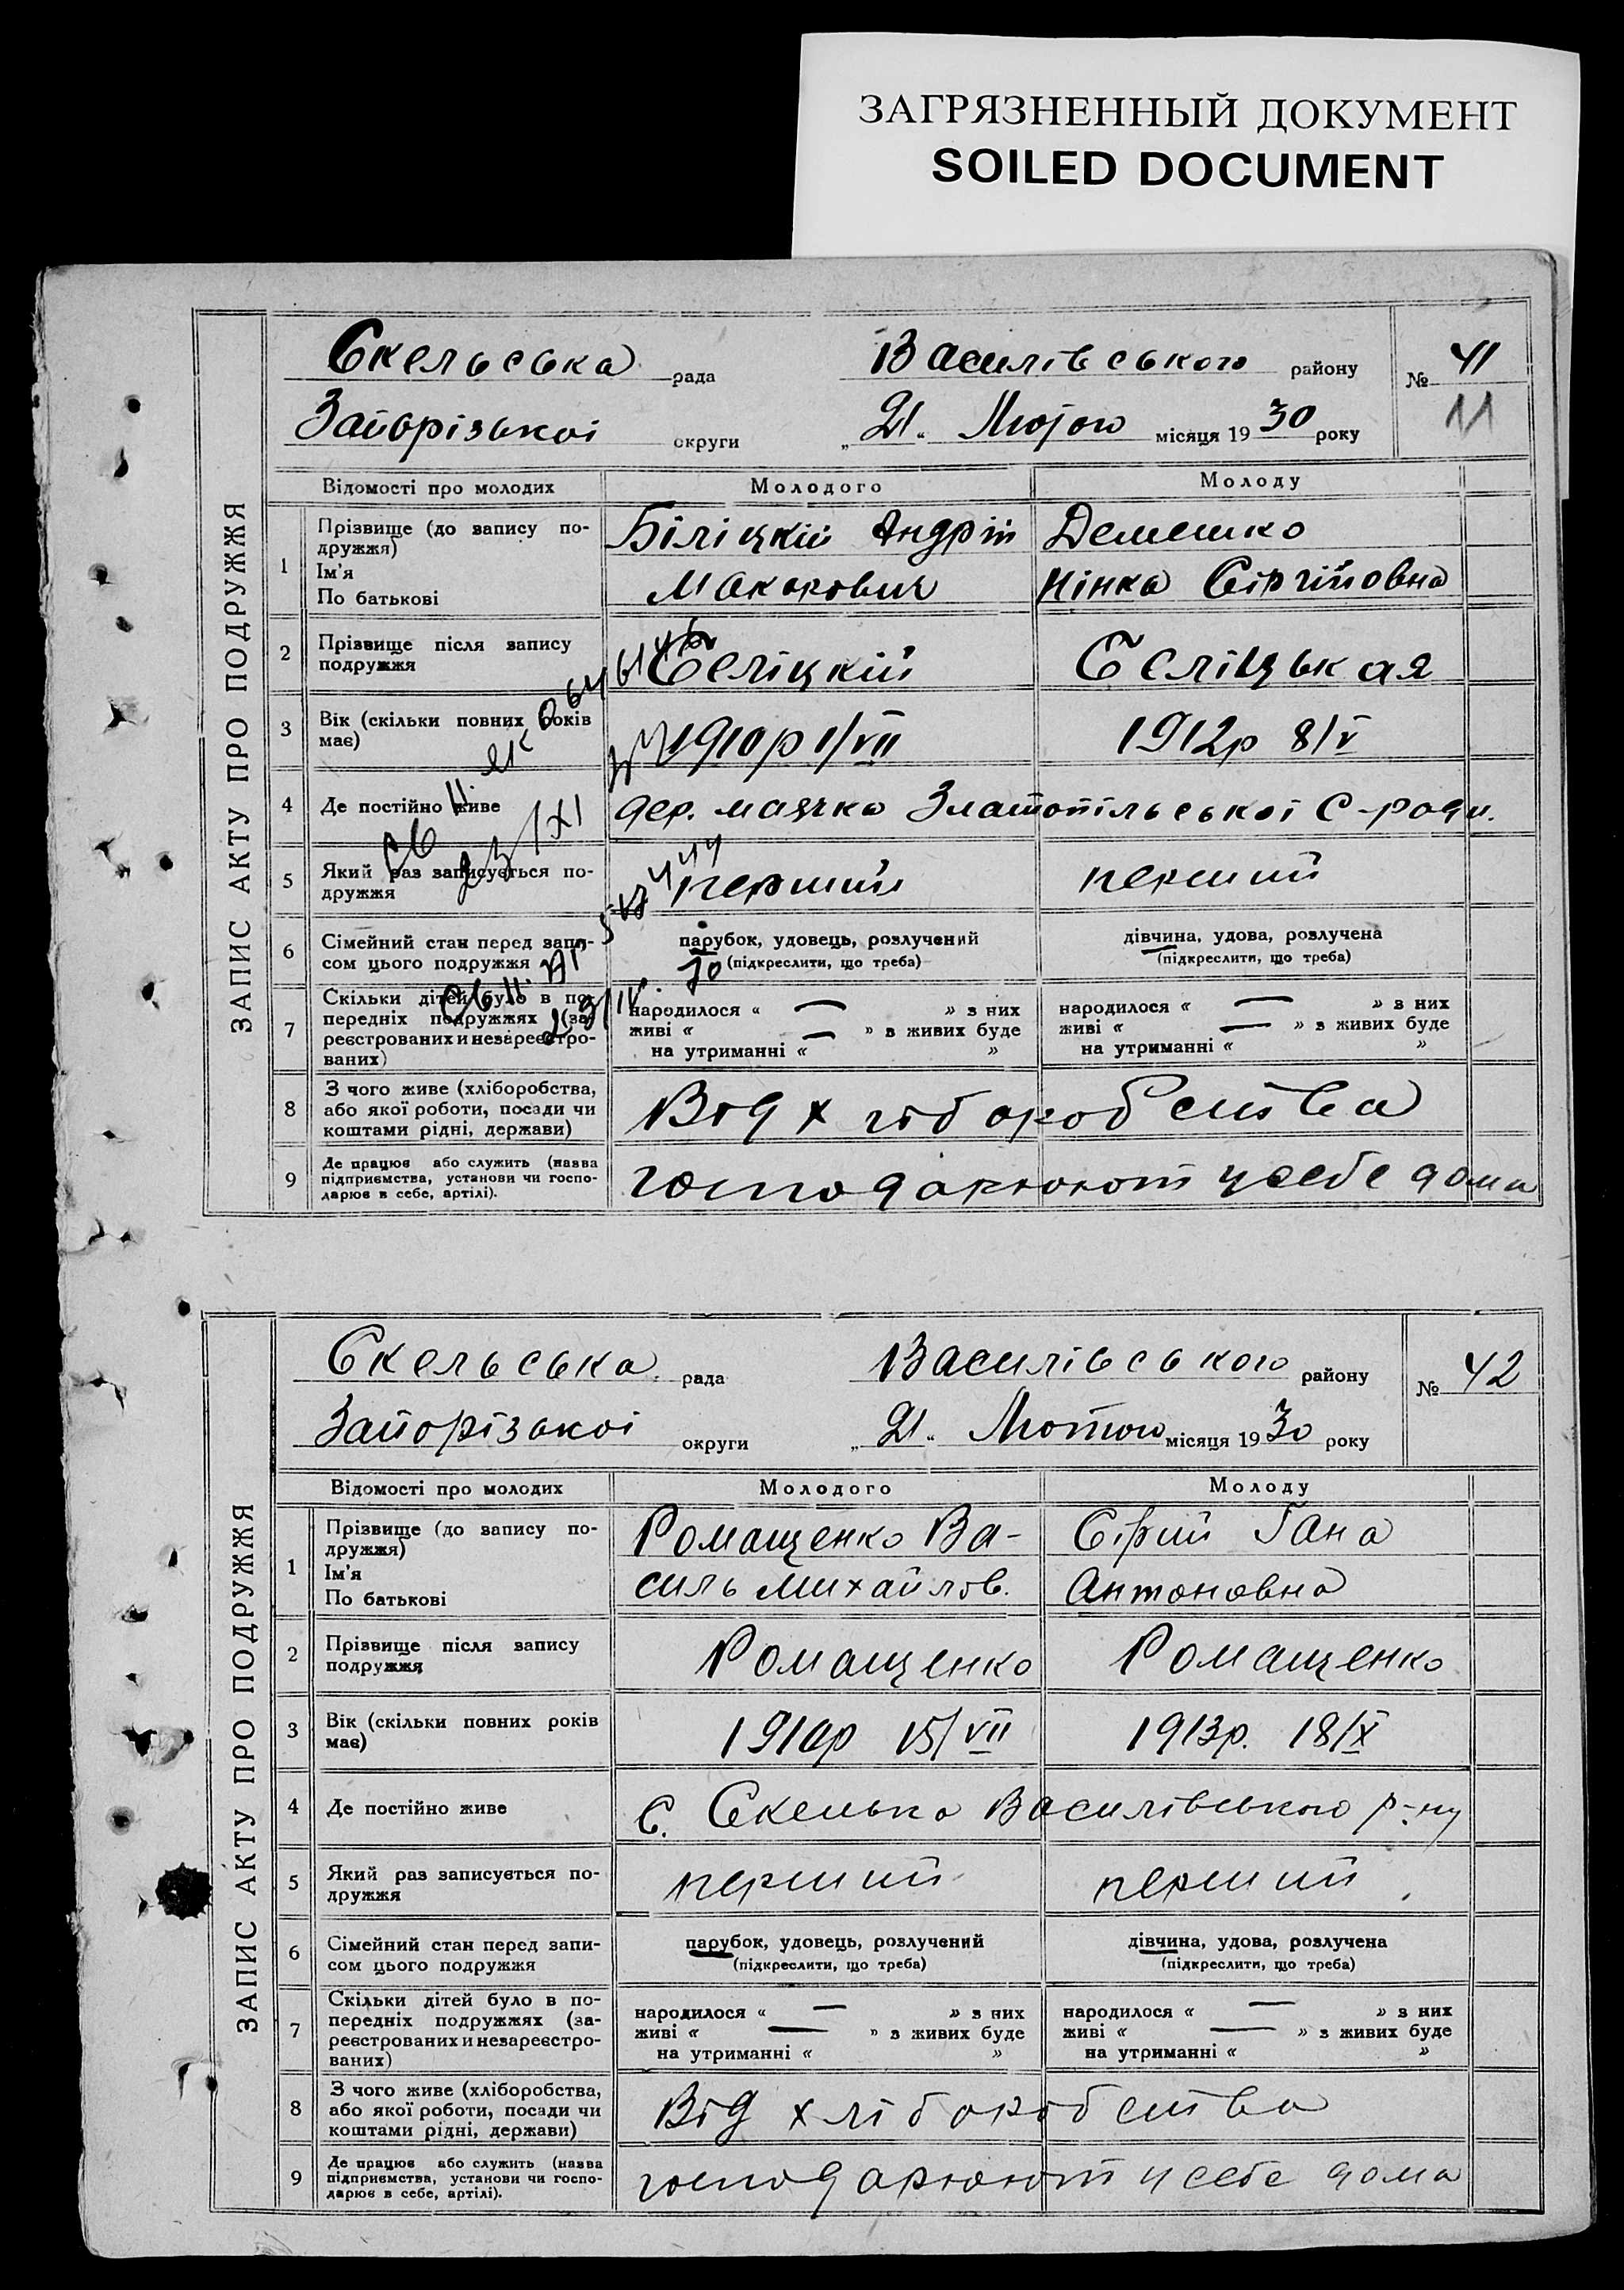 ЗАГРЯЗНЕННЫЙ ДОКУМЕНТ
SOILED DOCUMENT
ЗАПИС АКТУ ПРО ПОДРУЖЖЯ
Скельська рада Василівського району № 41
Запорізькоі округи „21“ Лютого місяця 1930 року 11
Відомості про молодих Молодого Молоду
1 Прізвище (до запису по-
дружжя)
Ім'я
По батькові
Біліцкій Андрій
Макарович
Демешко
Нінка Сіргійовна
2 Прізвище після запису
подружжя
Беліцкій Беліцькая
3 Вік (скільки повних років
має)
1910р 1/VII 1912р 8/V
4 Де постійно живе
дер. маячка Златопільськоі С-ради.
5 Який раз записується по-
дружжя
перший перший
6 Сімейний стан перед запи-
сом цього подружжя
парубок, удовець, розлучений
(підкреслити, що треба)
дівчина, удова, розлучена
(підкреслити, що треба)
7 Скільки дітей було в по-
передніх подружжях (за-
реєстрованих и незареєстро-
ваних)
народилося « — » з них
живі « — » з живих буде
на утриманні « »
народилося « — » з них
живі « — » з живих буде
на утриманні « »
8 З чого живе (хліборобства,
або якої роботи, посади чи
коштами рідні, держави)
Від хліборобства
9 Де працює або служить (назва
підприємства, установи чи госпо-
дарює в себе, артілі).
господарюют у себе дома
23/XI
ЗАПИС АКТУ ПРО ПОДРУЖЖЯ
Скельська рада Василівського району № 42
Запорізькоі округи „21“ Лютого місяця 1930 року
Відомості про молодих Молодого Молоду
1 Прізвище (до запису по-
дружжя)
Ім'я
По батькові
Ромащенко Ва-
силь Михайлов.
Сірий Гана
Антоновна
2 Прізвище після запису
подружжя
Ромащенко Ромащенко
3 Вік (скільки повних років
має)
1910р 15/VII 1913р. 18/X
4 Де постійно живе
С. Скелька Василівського р-ну
5 Який раз записується по-
дружжя
перший перший
6 Сімейний стан перед запи-
сом цього подружжя
парубок, удовець, розлучений
(підкреслити, що треба)
дівчина, удова, розлучена
(підкреслити, що треба)
7 Скільки дітей було в по-
передніх подружжях (за-
реєстрованих и незареєстро-
ваних)
народилося « — » з них
живі « — » з живих буде
на утриманні « »
народилося « — » з них
живі « — » з живих буде
на утриманні « »
8 З чого живе (хліборобства,
або якої роботи, посади чи
коштами рідні, держави)
Від хліборобства
9 Де працює або служить (назва
підприємства, установи чи госпо-
дарює в себе, артілі).
господарюют у себе дома